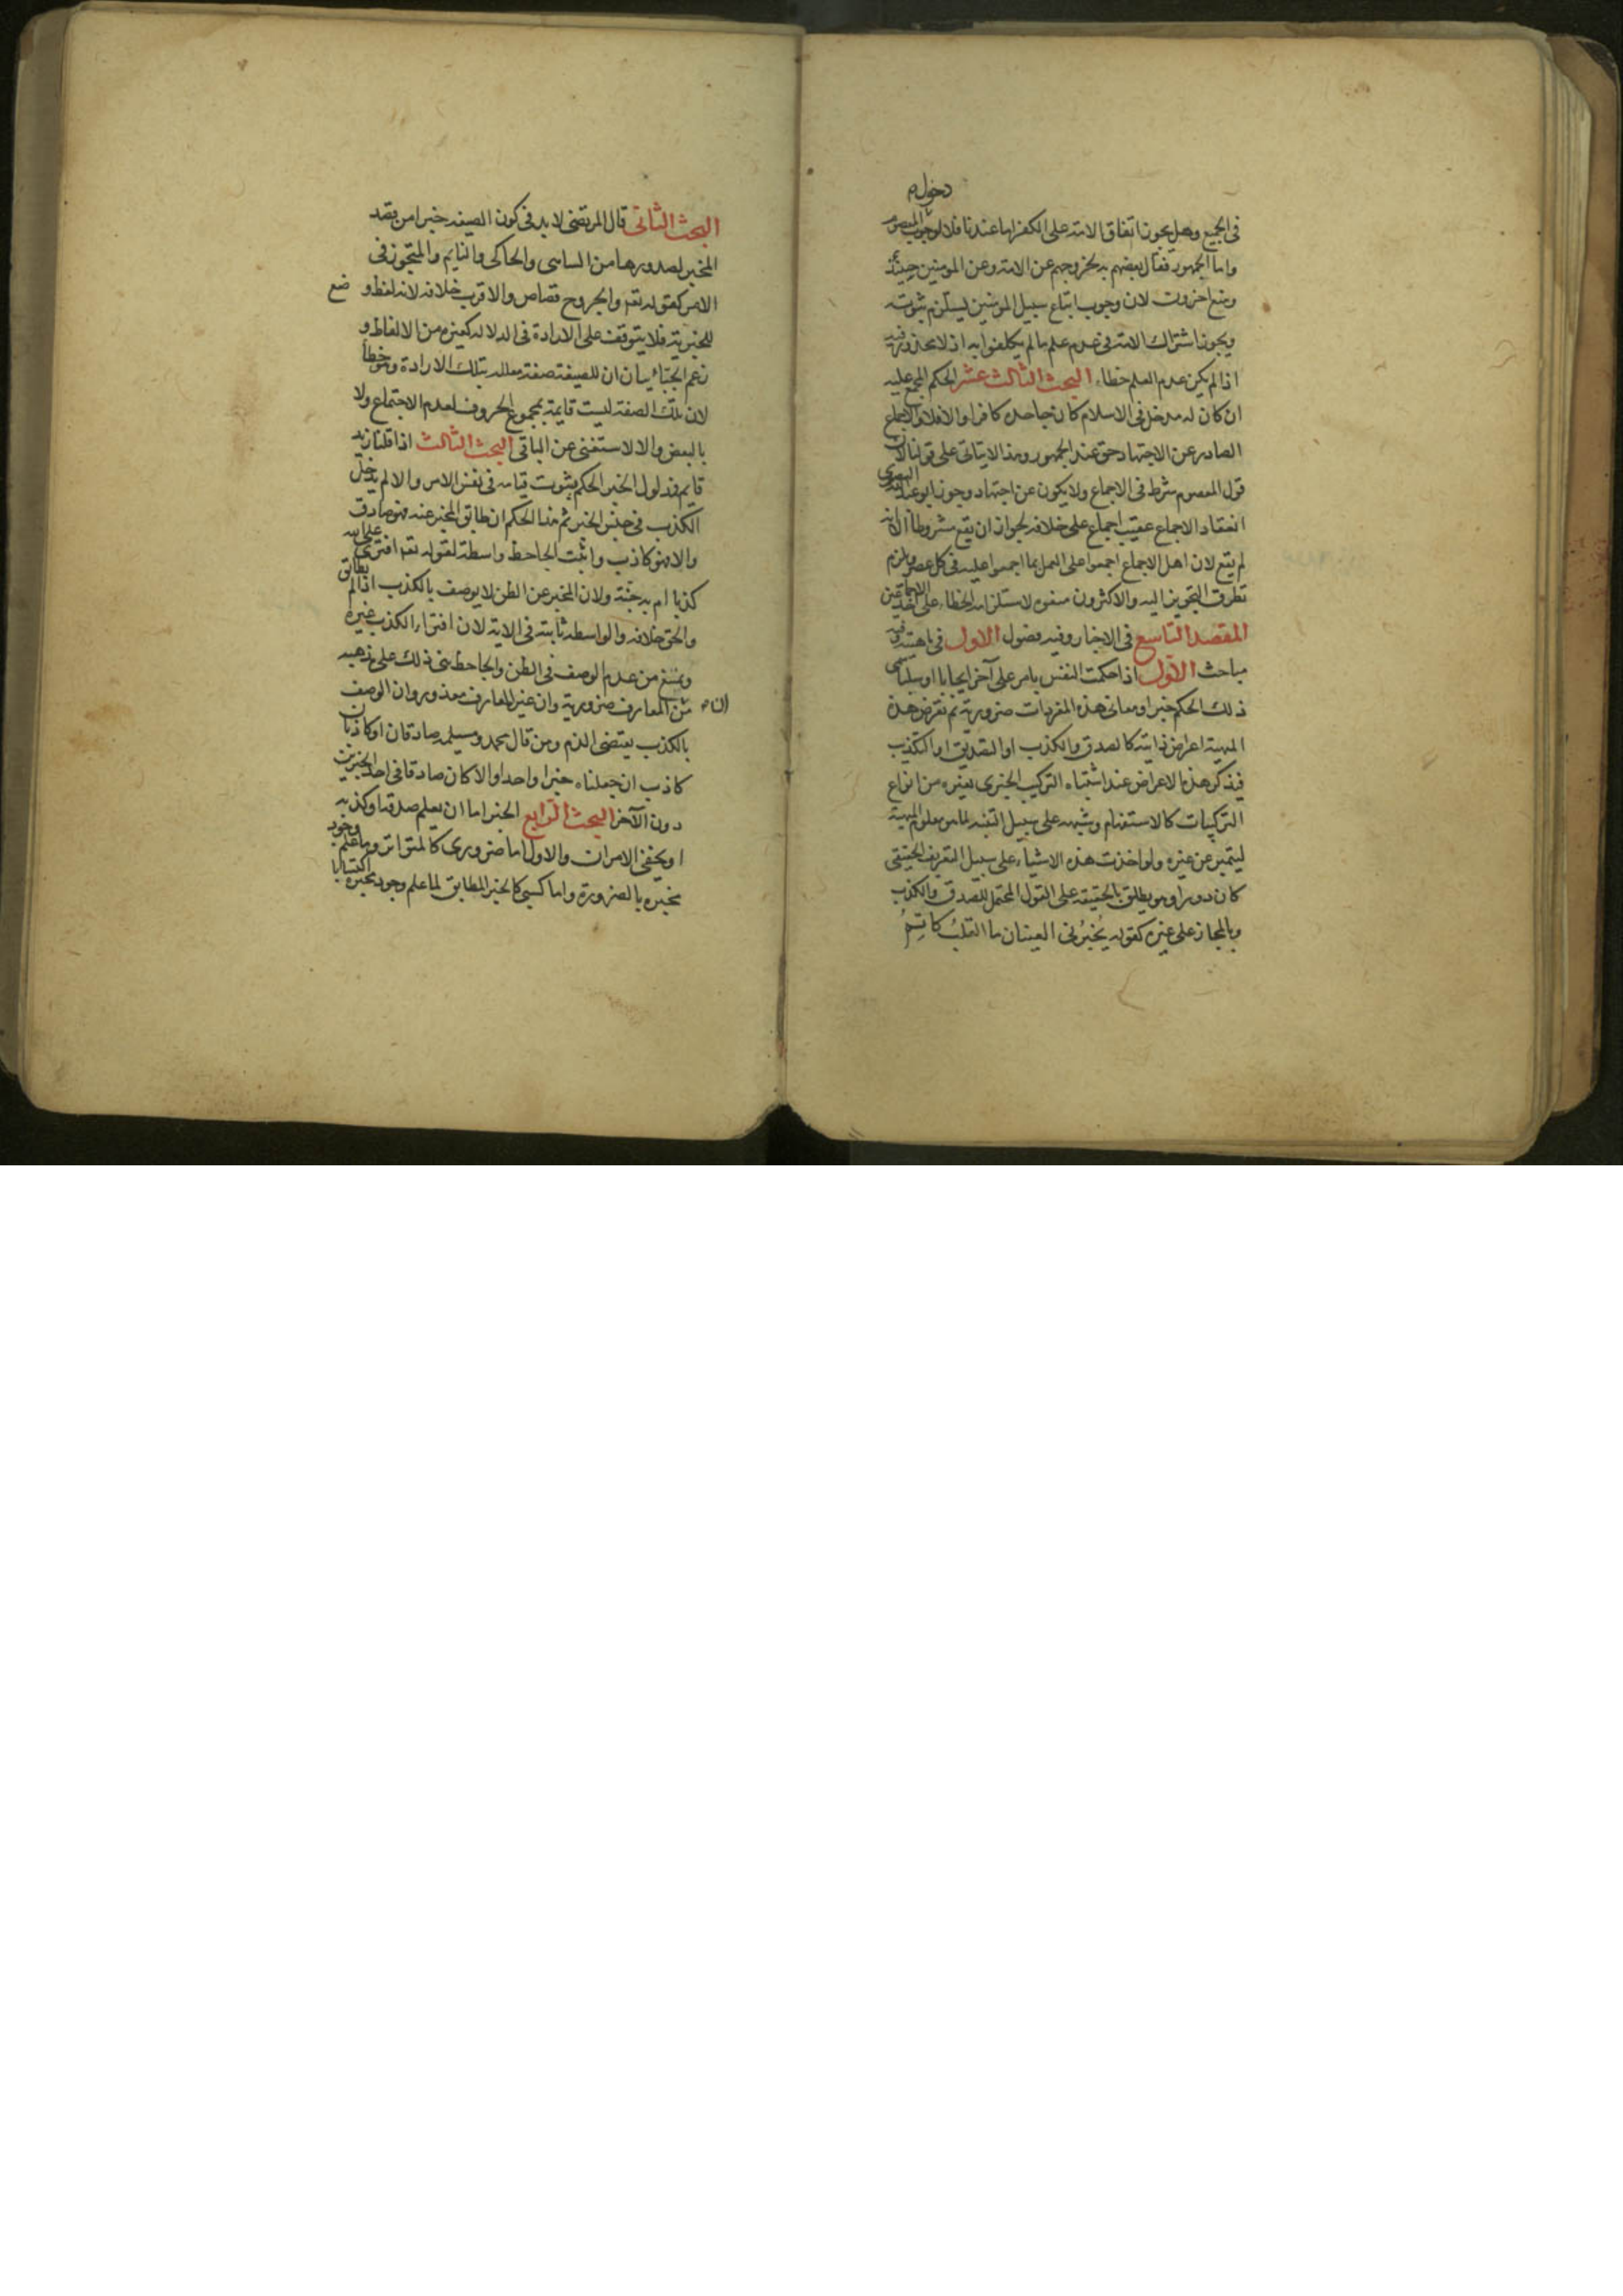 دخول
فى الجميع وهل يجوز اتفاق الامة على الكفر اما عندنا فلا لوجوب المعصوم
واما الجمهور فقال بعضهم به لخروجهم عن الامة وعن المومنين حينئذ
ومنع اخرون لان وجوب اتباع سبيل المومنين يستلزم ثبوته
ويجوز اشتراك الامة فى عدم علم ما لم يكلفوا به اذ لا محذور فيه
اذا لم يكن عدم العلم خطاء البحث الثالث عشر الحكم المجمع عليه
ان كان له مدخل فى الاسلام كان جاحده كافرا والا فلا والاجماع
الصادر عن الاجتهاد حق عند الجمهور وهذا لا يتاتى على قولنا لان
قول المعصوم شرط فى الاجماع ولا يكون عن اجتهاد وجوز ابو عبدالله البصرى
انعقاد الاجماع عقيب اجماع على خلافه لجواز ان يقع مشروطا الا انه
لم يقع لان اهل الاجماع اجمعوا على العمل بما اجمعوا عليه فى كل عصر ويلزم
تطرق التجويز اليه والاكثرون منعوه لاستلزامه الخطاء على احد الاجماعين
المقصد التاسع فى الاخبار وفيه فصول الاول فى ماهيته وفيه
مباحث الاول اذا حكمت النفس بامر على آخر ايجابا او سلبا سمى
ذلك الحكم خبرا ومعانى هذه المفردات ضرورية ثم تعرض هذه
المهية اعراض ذاتية كالصدق والكذب او التصديق او التكذيب
فيذكر هذه الاعراض عند اشتباه التركيب الخبرى بغيره من انواع
التركيبات كالاستفهام وشبهه على سبيل التنبيه لما هو معلوم المهية
ليتميز عن غيره ولو اخذت هذه الاشياء على سبيل التعريف الحقيقى
كان دورا وهو يطلق بالحقيقة على القول المحتمل للصدق والكذب
وبالمجاز على غيره كقوله يُخبرُنى العينان ما القلبُ كاتِمُ
البحث الثانى قال المرتضى لا بد فى كون الصيغة خبرا من قصد
المخبر لصدورها من الساهى والحاكى والنايم والمتجوز فى
الامر كقوله تعم والجروح قصاص والاقرب خلافه لانه لفظ وضع
للخبرية فلا يتوقف على الارادة فى الدلالة كغيره من الالفاظ و
زعم الجبائيان ان للصيغة صفة معللة بتلك الارادة وهو خطأ
لان تلك الصفة ليست قايمة بمجموع الحروف لعدم الاجتماع ولا
بالبعض والا لاستغنى عن الباقى البحث الثالث اذا قلنا زيد
قايم فمدلول الخبر الحكم بثبوت قيامه فى نفس الامر والا لم يدخل
الكذب فى جنس الخبر ثم هذا الحكم ان طابق المخبر عنه فهو صادق
والا فهو كاذب واثبت الجاحظ واسطة لقوله تعم افترى على الله
كذبا ام به جنة ولان المخبر عن الظن لا يوصف بالكذب اذا لم يطابق
والحق خلافه والواسطة ثابتة فى الاية لان افتراء الكذب غيره
ونمنع من عدم الوصف فى الظن والجاحظ بنى ذلك على مذهبه
من ان المعارف ضرورية وان غير العارف معذور وان الوصف
بالكذب يقتضى الذم ومن قال محمد ومسيلمه صادقان او كاذبان
كاذب ان جعلناه خبرا واحدا والا كان صادقا فى احد الخبرين
دون الآخر البحث الرابع الخبر اما ان يعلم صدقه او كذبه
او يخفى الامران والاول اما ضرورى كالمتواتر وما علم وجود
مخبره بالضرورة واما كسبى كالخبر المطابق لما علم وجود مخبره اكتسابا